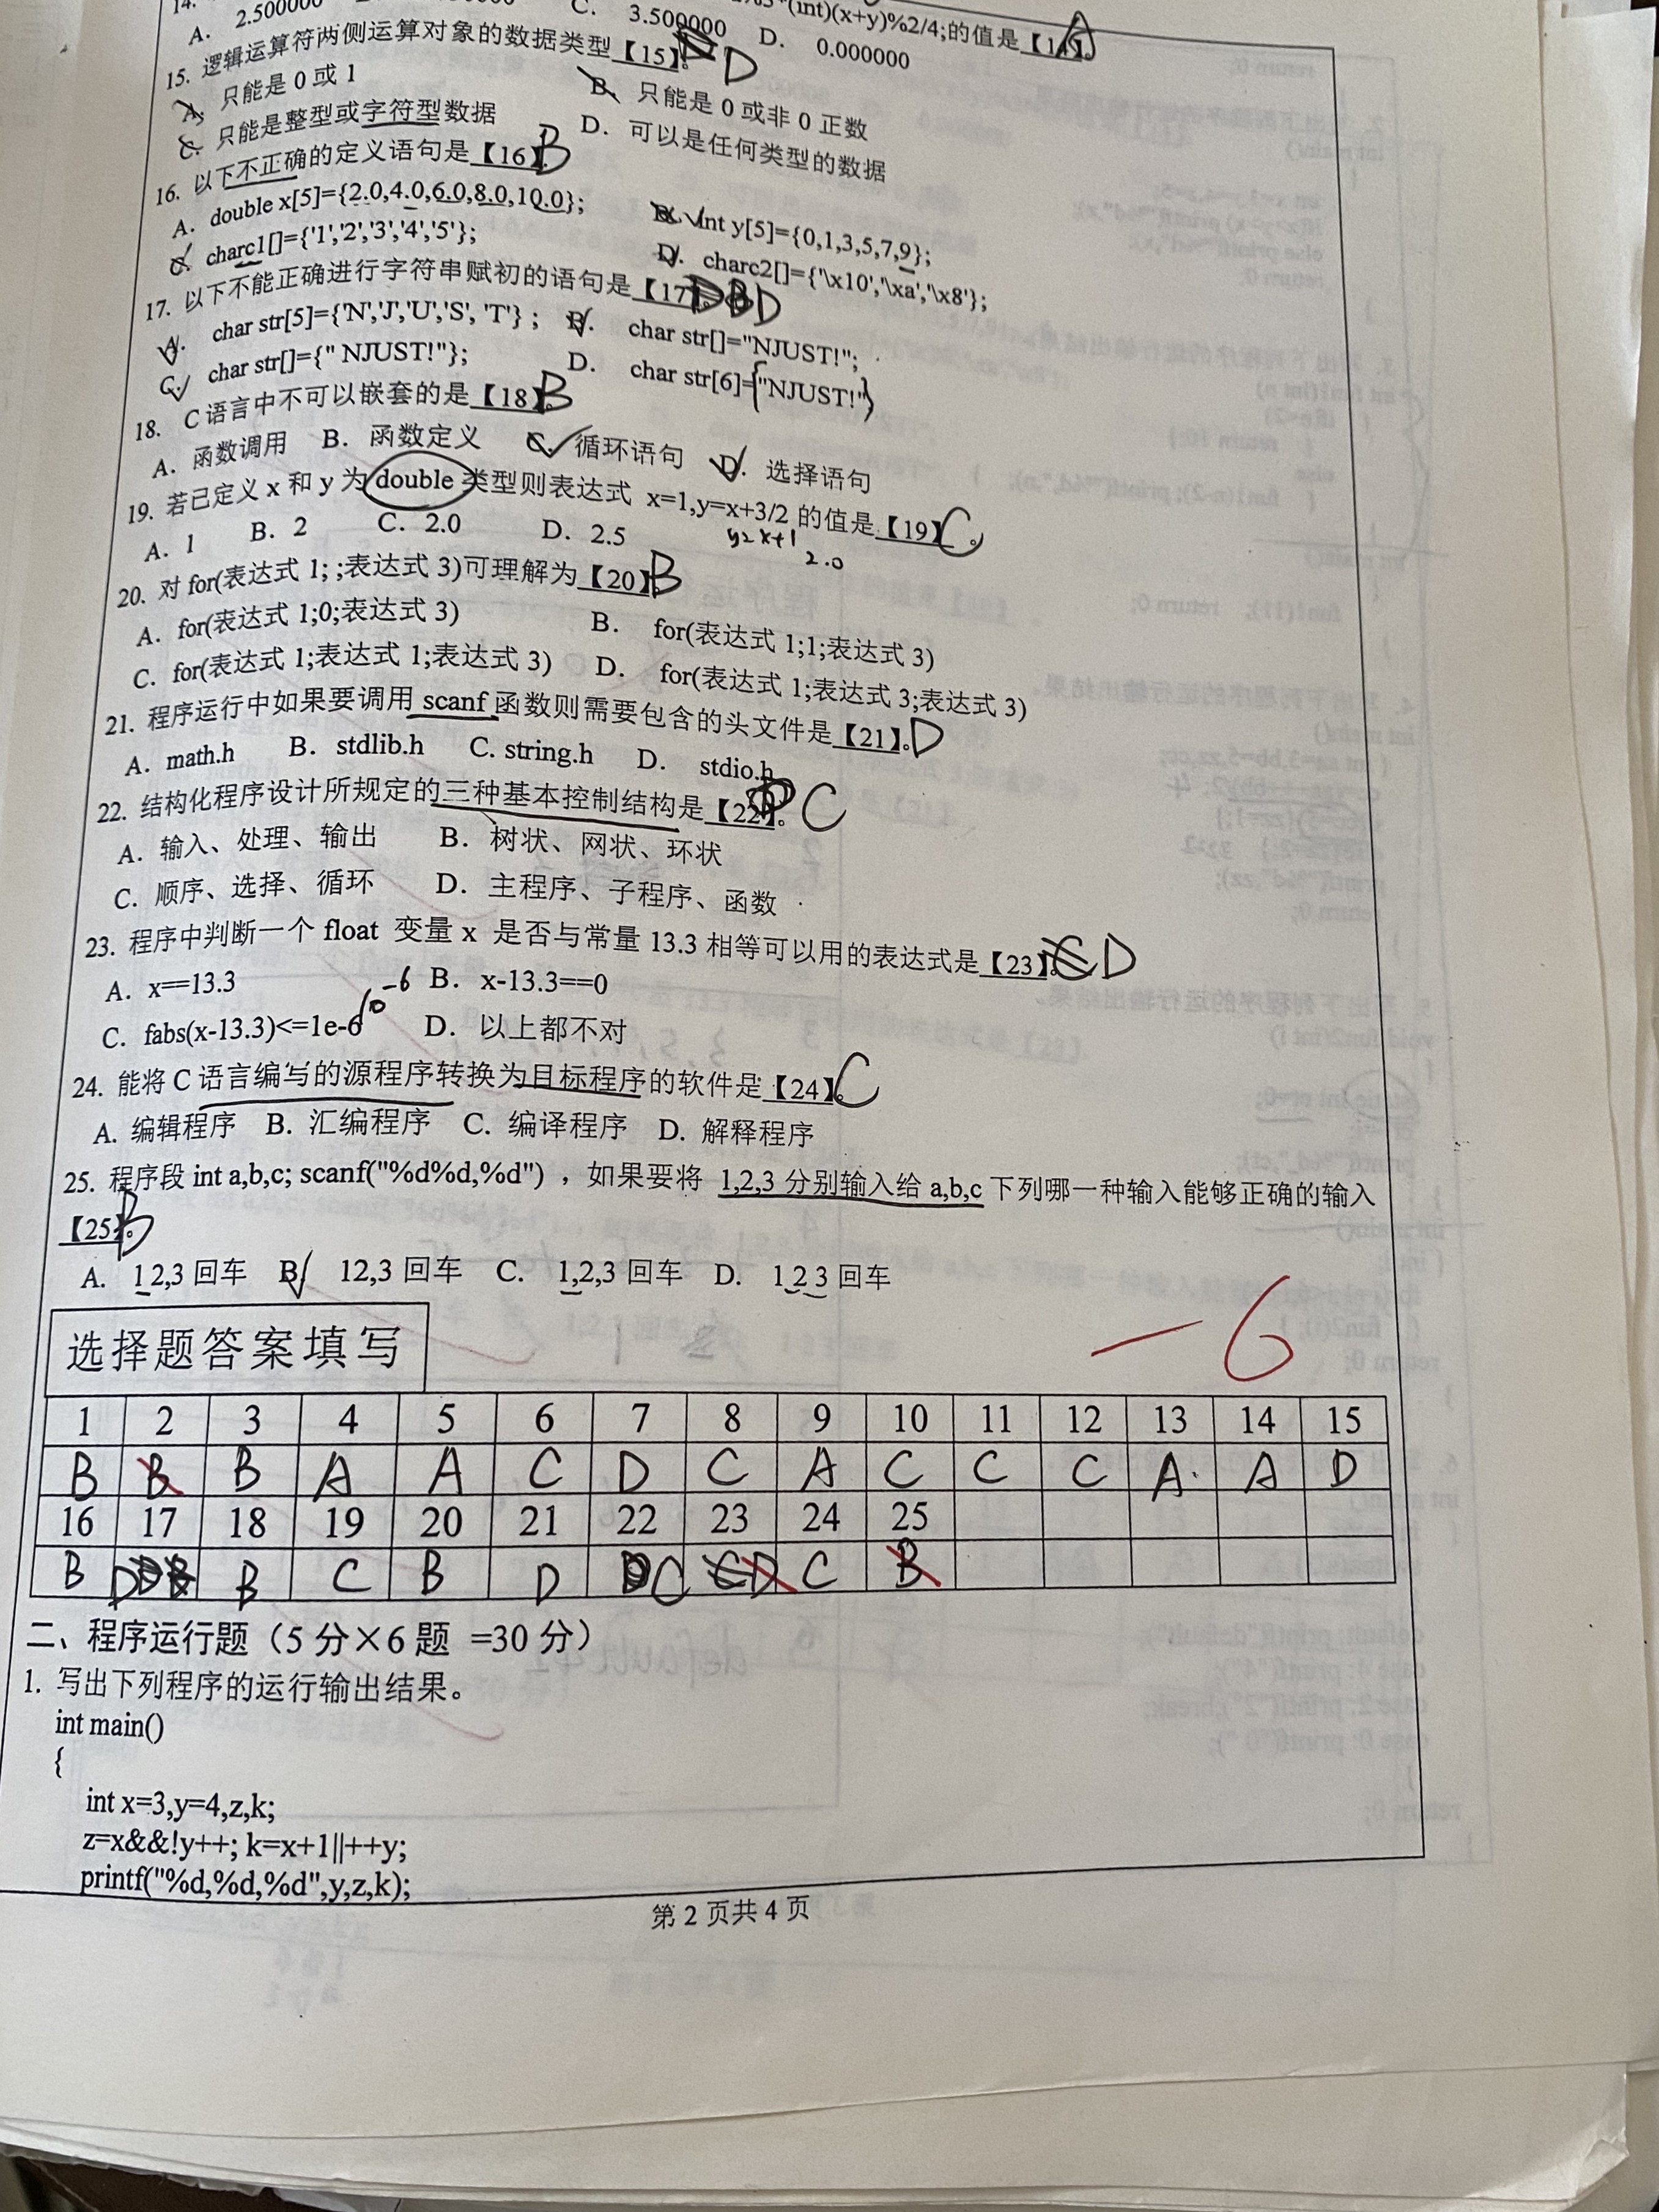 14.
(int)(x+y)%2/4;的值是【14】。A
A. 2.500000 C. 3.500000 D. 0.000000
15. 逻辑运算符两侧运算对象的数据类型【15】。D
A. 只能是 0 或 1 B. 只能是 0 或非 0 正数
C. 只能是整型或字符型数据 D. 可以是任何类型的数据
16. 以下不正确的定义语句是【16】B
A. double x[5]={2.0,4.0,6.0,8.0,10.0}; B. int y[5]={0,1,3,5,7,9};
C. charc1[]={'1','2','3','4','5'}; D. charc2[]={'\x10','\xa','\x8'};
17. 以下不能正确进行字符串赋初的语句是【17】。D
A. char str[5]={'N','J','U','S', 'T'} ; B. char str[]="NJUST!";
C. char str[]={" NJUST!"}; D. char str[6]={"NJUST!"}
18. C 语言中不可以嵌套的是【18】。B
A. 函数调用 B. 函数定义 C. 循环语句 D. 选择语句
19. 若已定义 x 和 y 为 double 类型则表达式 x=1,y=x+3/2 的值是【19】C。
y=x+1
2.0
A. 1 B. 2 C. 2.0 D. 2.5
20. 对 for(表达式 1; ;表达式 3)可理解为【20】B
A. for(表达式 1;0;表达式 3) B. for(表达式 1;1;表达式 3)
C. for(表达式 1;表达式 1;表达式 3) D. for(表达式 1;表达式 3;表达式 3)
21. 程序运行中如果要调用 scanf 函数则需要包含的头文件是【21】。D
A. math.h B. stdlib.h C. string.h D. stdio.h
22. 结构化程序设计所规定的三种基本控制结构是【22】。C
A. 输入、处理、输出 B. 树状、网状、环状
C. 顺序、选择、循环 D. 主程序、子程序、函数
23. 程序中判断一个 float 变量 x 是否与常量 13.3 相等可以用的表达式是【23】。C D
A. x==13.3 B. x-13.3==0
10-6
C. fabs(x-13.3)<=1e-6 D. 以上都不对
24. 能将 C 语言编写的源程序转换为目标程序的软件是【24】C
A. 编辑程序 B. 汇编程序 C. 编译程序 D. 解释程序
25. 程序段 int a,b,c; scanf("%d%d,%d") ，如果要将 1,2,3 分别输入给 a,b,c 下列哪一种输入能够正确的输入
【25】。B
A. 1 2,3 回车 B. 12,3 回车 C. 1,2,3 回车 D. 1 2 3 回车
-6
选择题答案填写
1 2 3 4 5 6 7 8 9 10 11 12 13 14 15
B B B A A C D C A C C C A A D
16 17 18 19 20 21 22 23 24 25
B D B C B D C C D C B
二、程序运行题（5 分×6 题 =30 分）
1. 写出下列程序的运行输出结果。
int main()
{
int x=3,y=4,z,k;
z=x&&!y++; k=x+1||++y;
printf("%d,%d,%d",y,z,k);
第 2 页共 4 页